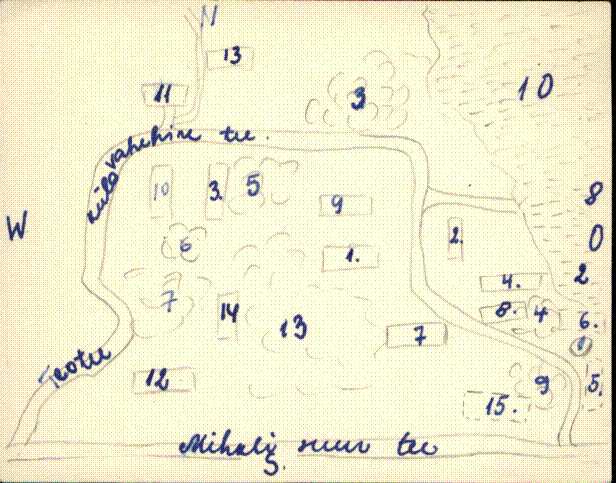 N
13
11
3
10
küla vahehine tee.
10
3.
5
9
8
W
6
2.
0
1.
4.
2
7
14
13
8.
4
6.
7
1
Teotee
12
9
5.
15.
Mihkli suur tee
S.